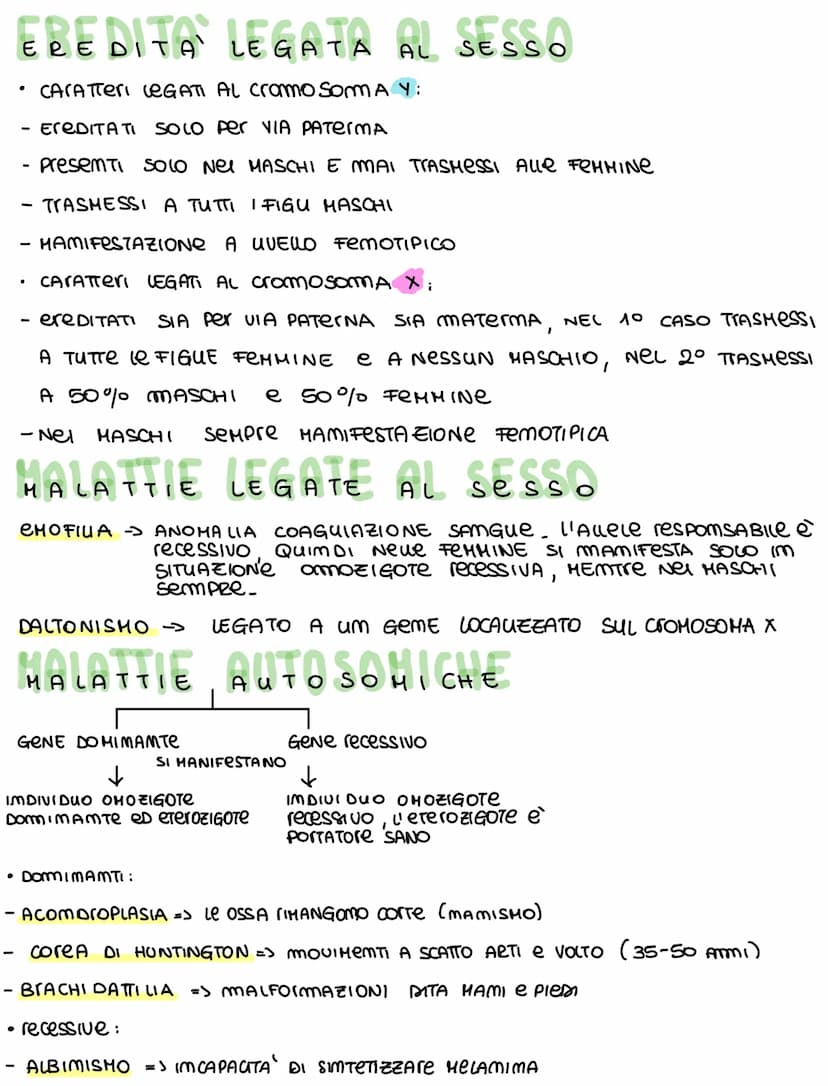 EREDITÀ LEGATA AL SESSO
• CARATTERI LEGATI AL CROMOSOMA Y:
- EREDITATI SOLO PER VIA PATERNA
- PRESENTI SOLO NEI MASCHI E MAI TRASMESSI ALLE FEMMINE
- TRASMESSI A TUTTI I FIGLI MASCHI
- MANIFESTAZIONE A LIVELLO FENOTIPICO
• CARATTERI LEGATI AL CROMOSOMA X:
- EREDITATI SIA PER VIA PATERNA SIA MATERNA, NEL 1° CASO TRASMESSI
A TUTTE LE FIGLIE FEMMINE E A NESSUN MASCHIO, NEL 2° TRASMESSI
A 50% MASCHI E 50% FEMMINE
- NEI MASCHI SEMPRE MANIFESTAZIONE FENOTIPICA
MALATTIE LEGATE AL SESSO
EMOFILIA -> ANOMALIA COAGULAZIONE SANGUE. L'ALLELE RESPONSABILE È
RECESSIVO, QUINDI NELLE FEMMINE SI MANIFESTA SOLO IN
SITUAZIONE OMOZIGOTE RECESSIVA, MENTRE NEI MASCHI
SEMPRE.
DALTONISMO -> LEGATO A UN GENE LOCALIZZATO SUL CROMOSOMA X
MALATTIE AUTOSOMICHE
GENE DOMINANTE GENE RECESSIVO
SI MANIFESTANO
INDIVIDUO OMOZIGOTE
DOMINANTE ED ETEROZIGOTE
INDIVIDUO OMOZIGOTE
RECESSIVO, L'ETEROZIGOTE È
PORTATORE SANO
• DOMINANTI:
- ACONDROPLASIA => LE OSSA RIMANGONO CORTE (NANISMO)
- COREA DI HUNTINGTON => MOVIMENTI A SCATTO ARTI E VOLTO (35-50 ANNI)
- BRACHIDATTILIA => MALFORMAZIONI DITA MANI E PIEDI
• RECESSIVE:
- ALBINISMO => INCAPACITÀ DI SINTETIZZARE MELANINA